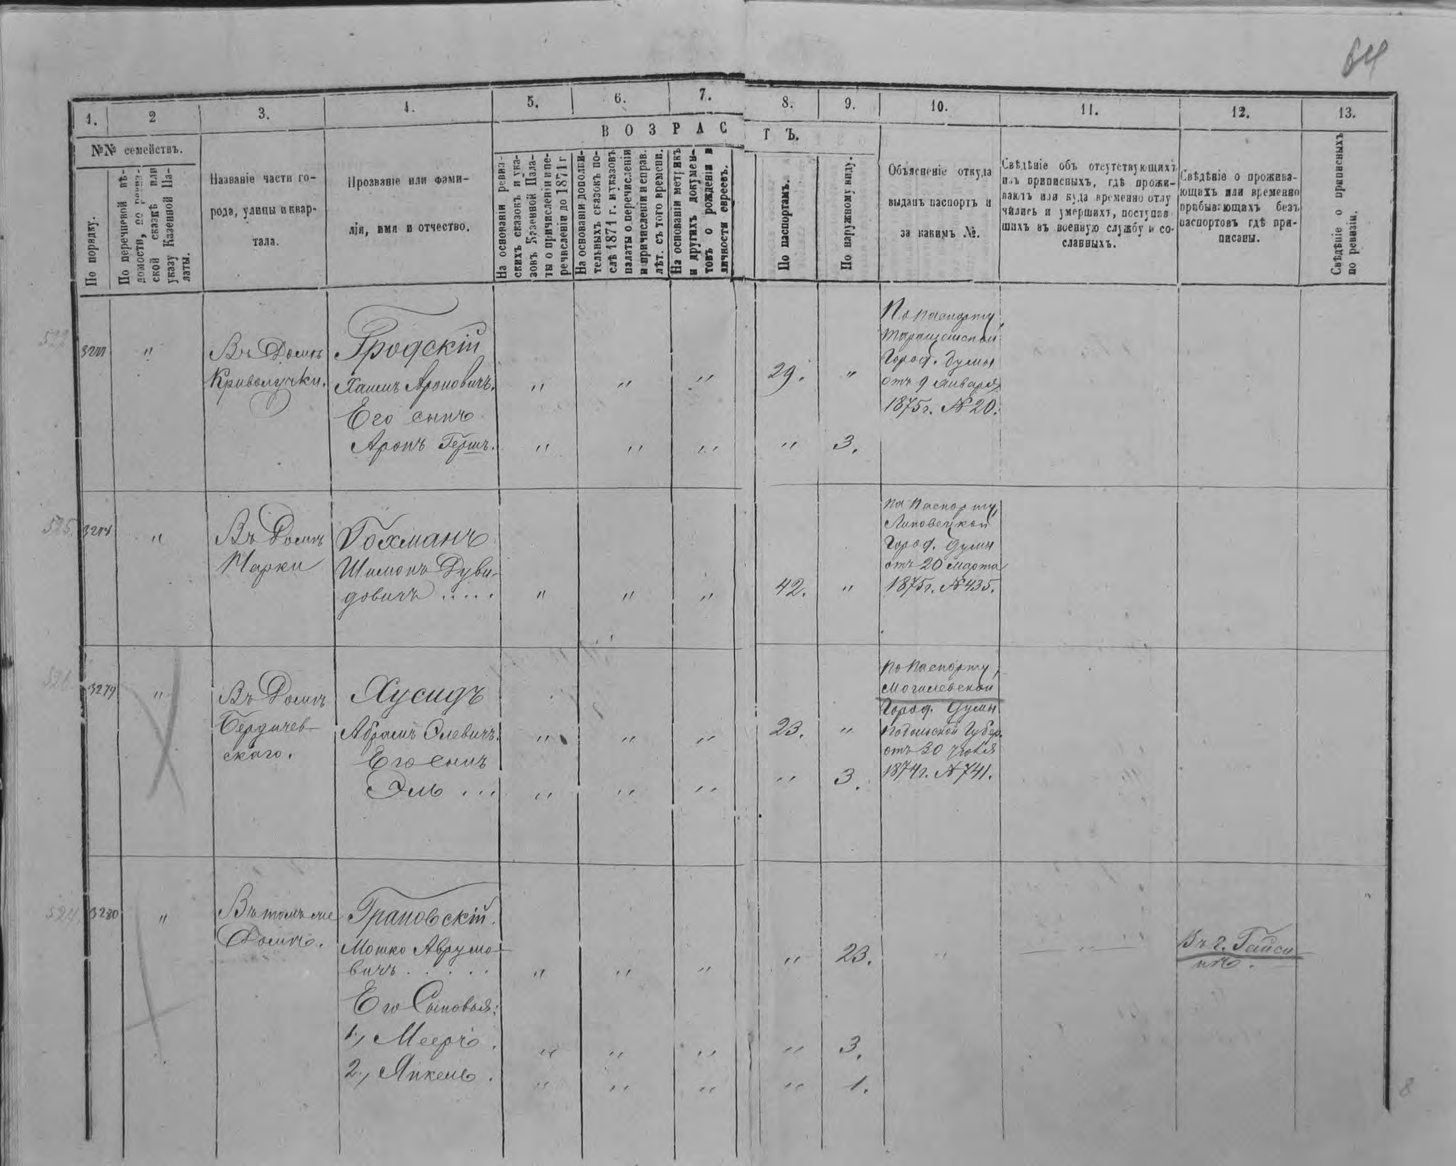 64
1.
2
3.
4.
5.
6.
7.
8.
9.
10.
11.
12.
13.
№№ семействъ.
ВОЗРАСТЪ.
По порядку.
По перечневой вѣ-
домости, по ревиз-
ской сказкѣ или
указу Казенной Па-
латы.
Названіе части го-
рода, улицы и квар-
тала.
Прозваніе или фами-
лія, имя и отчество.
На основаніи ревиз-
скихъ сказокъ и ука-
зовъ Казенной Пала-
ты о причисленіи и пе-
речисленіи до 1871 г
На основаніи дополни-
тельныхъ сказокъ по-
слѣ 1871 г. и указовъ
палаты о перечисленіи
и причисленіи и исправ.
лѣт. съ того времени.
На основаніи метрикъ
и другихъ докумен-
товъ о рожденіи и
личности евреевъ.
По паспортамъ.
По наружному виду.
Объясненіе откуда
выданъ паспортъ и
за какимъ №.
Свѣдѣніе объ отсутствующихъ
изъ приписныхъ, гдѣ прожи-
ваютъ или куда временно отлу
чились и умершихъ, поступив-
шихъ въ военную службу и со-
сланныхъ.
Свѣдѣніе о прожива-
ющихъ или временно
прибывающихъ безъ
паспортовъ гдѣ при-
писаны.
Свѣдѣніе о приписныхъ
по ревизіи.
"
Въ Домѣ
Криволучки.
Гродскій
Хаимъ Ароновичъ.
" " " 29. "
Его сынъ
Аронъ Гершъ.
" " " " 3.
По паспорту,
Таращанской
Город. Думы
отъ 9 Января
1875г. №20.
"
Въ Домѣ
Марки
Гохманъ
Шимонъ Дуви-
довичъ .....
" " " 42. "
По паспорту,
Липовецкой
Город. Думы
отъ 20 марта
1875г. №435.
3279
"
Въ Домѣ
Бердичев-
скаго.
Хусидъ
Абрамъ Элевичъ.
" " " 23. "
Его сынъ
Эль ...
" " " " 3.
По паспорту,
Могилевской
Город. Думы
Подольской Губер.
1874г. №741.
3280
"
Въ томъ же
Домѣ.
Грановскій.
Мошко Аврумо-
вичъ .....
" " " " 23. "
Въ г. Гайси-
нѣ.
Его Сыновья:
1, Мееръ.
" " " " 3.
2, Янкель.
" " " " 1.
8